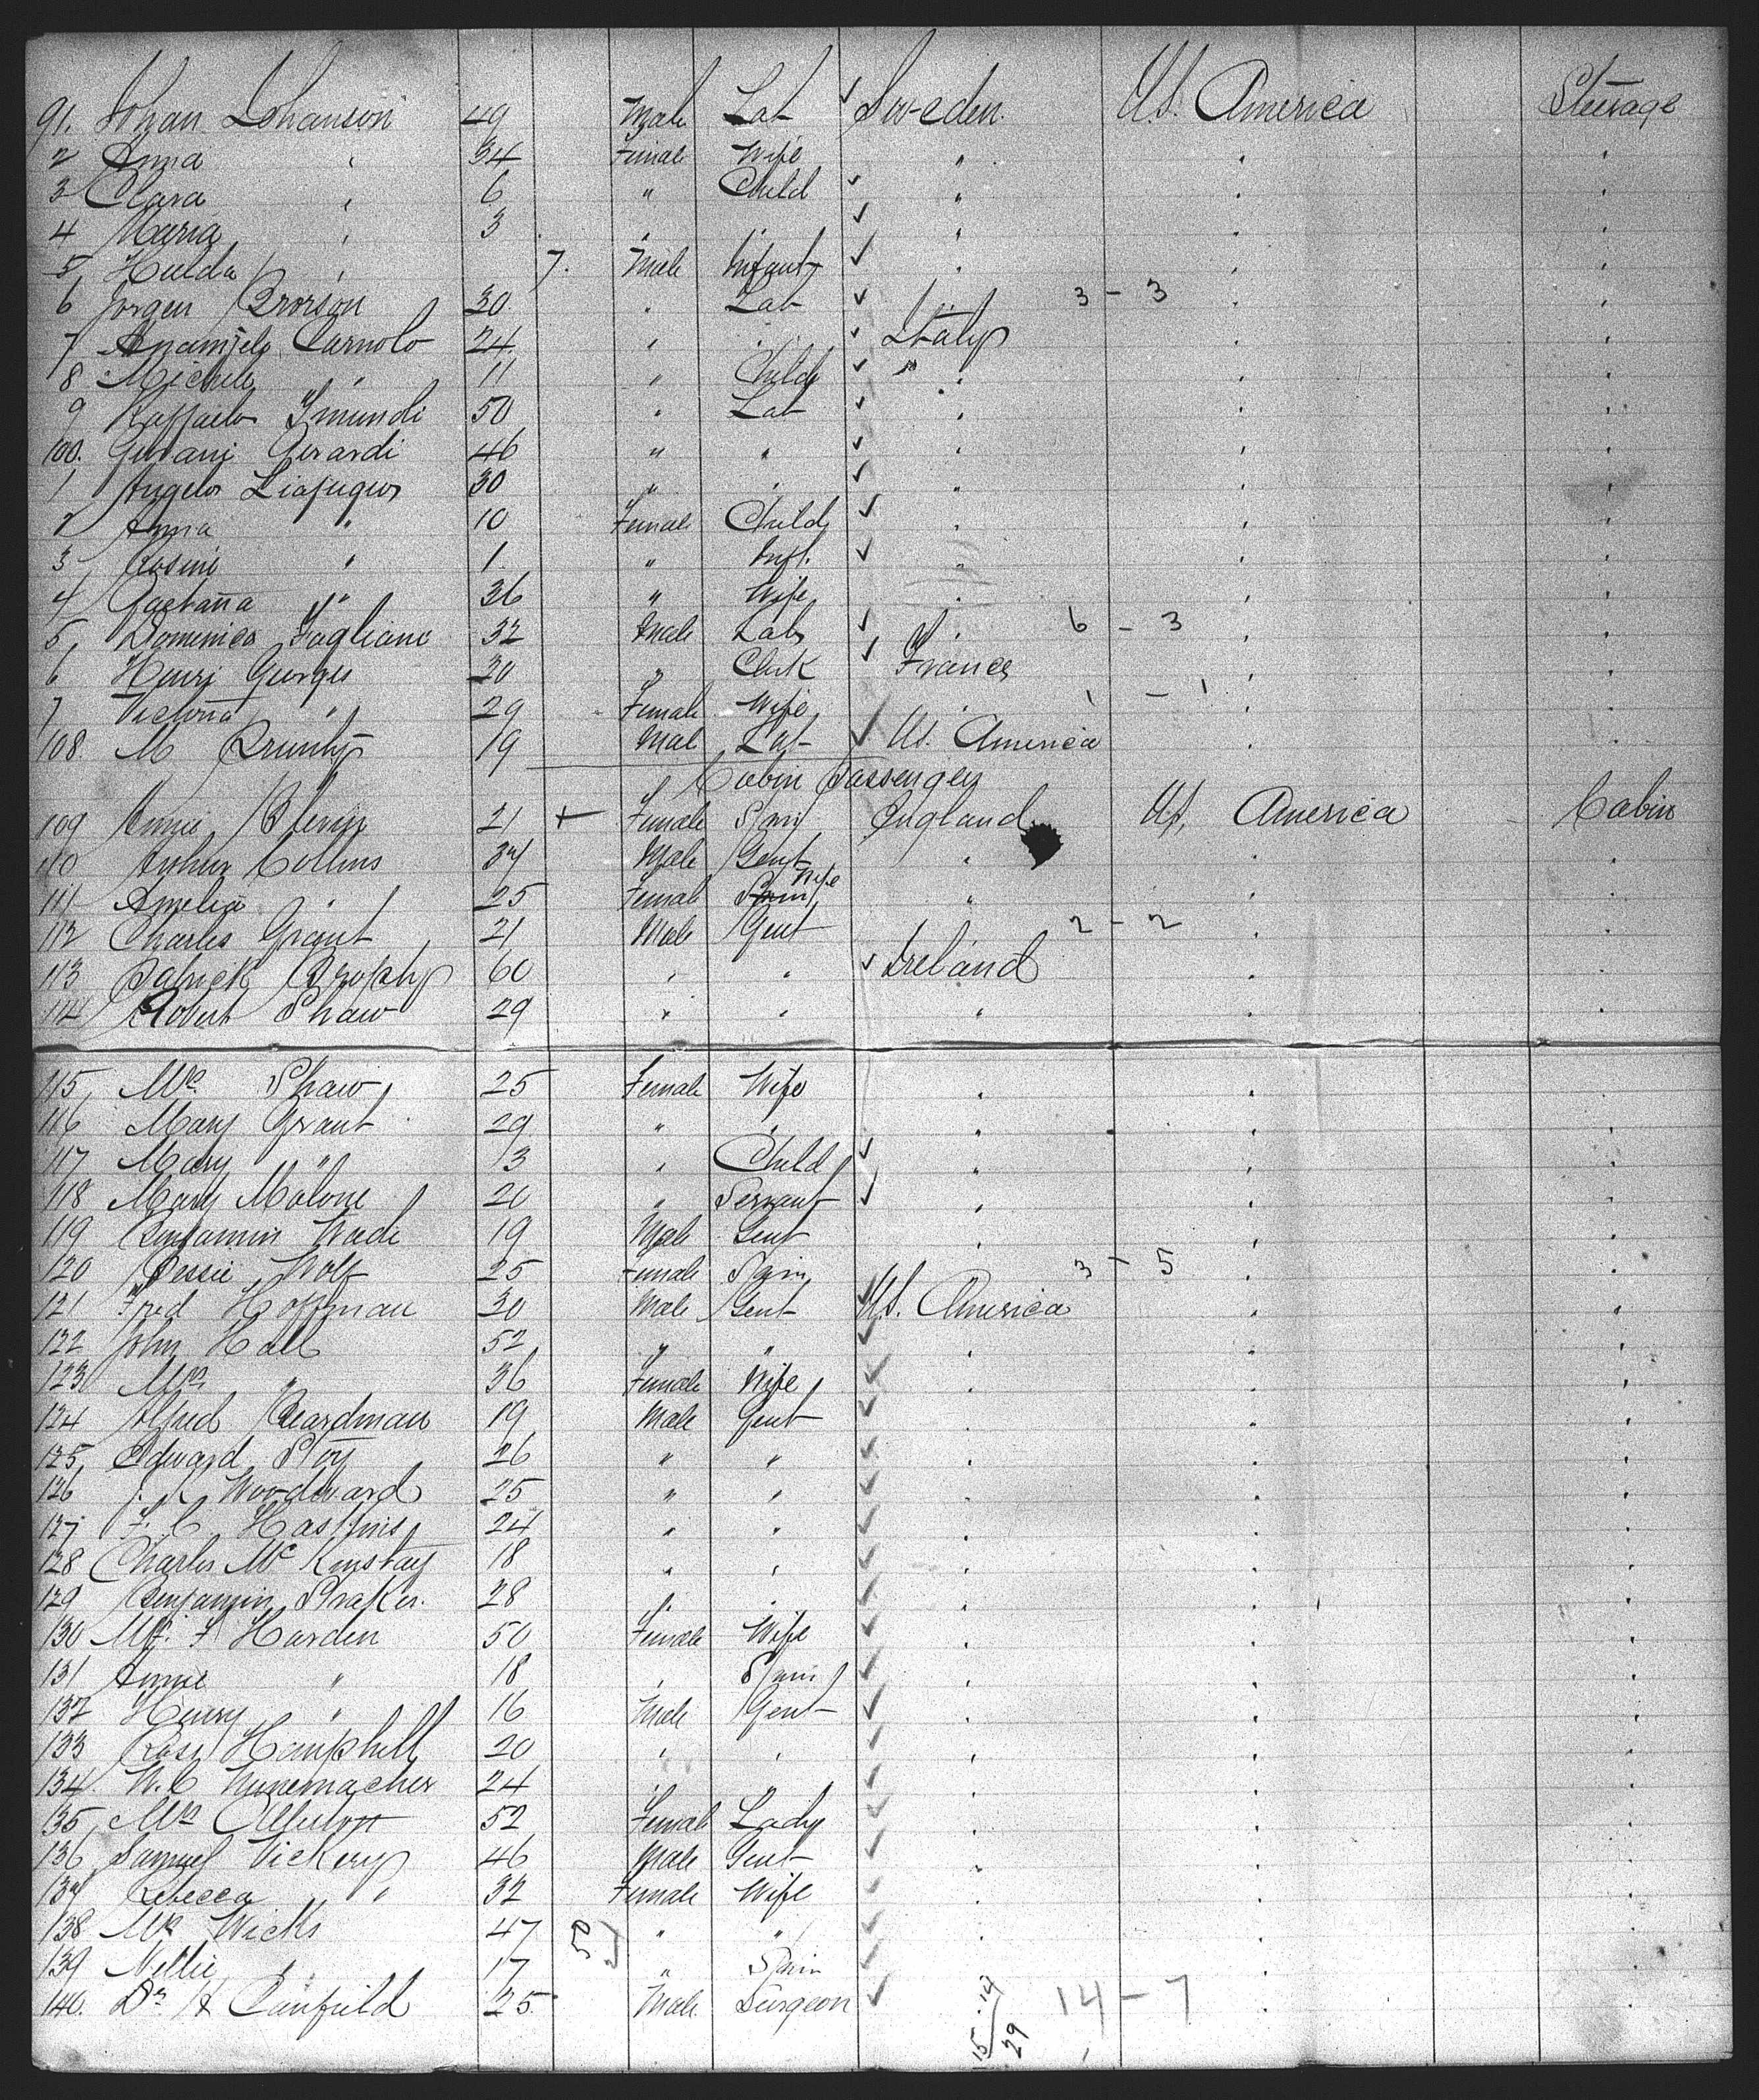 91. Johan Johanson 49 Male Lab ✓ Sweden. U.S. America Steerage
2 Anna " 34 Female Wife " " "
3 Clara " 6 " Child ✓ " " "
4 Maria " 3 " " ✓ " " "
5 Hulda " 7. Male Infant ✓ " " "
6 Jorgen Brorson 30 " Lab ✓ " 3 - 3 " "
7 Carnolo 24 " " ✓ Italy " "
8 Michele " 11 " Child ✓ " " "
9 Raffaelo 50 " Lab ✓ " " "
100. Gerardi 46 " " ✓ " " "
1 Angelo 30 " " ✓ " " "
2 Anna " 10 Female Child ✓ " " "
3 Rosine " 1. " Inft. ✓ " " "
4 Gaetana " 36 " Wife " " "
5, Domenico Fagliano 32 Male Lab ✓ " 6 - 3 " "
6 Henri Georges 30 " Clerk ✓ France " "
7 Victoria " 29 Female Wife " 1 - 1 " "
108. M 19 Male Lab ✓ U.S. America " "
Cabin Passengers
109 Annie Blevin 21 + Female Spin England U.S. America Cabin
110 Arthur Collins 34 Male Gent " " "
111 Amelia " 25 Female Spin Wife " " "
112 Charles Grant 21 Male Gent " 2 - 2 " "
113 Patrick Brophy 60 " " ✓ Ireland " "
114 Robert Shaw 29 " " " " "
115, Mrs Shaw 25 Female Wife " " "
116 Mary Grant 29 " " " " "
117 Mary " 13 " Child ✓ " " "
118 Mary Malone 20 " Servant ✓ " " "
119 Benjamin Wade 19 Male Gent " " "
120 Bessie Wolf 25 Female Spin " 3 - 5 " "
121 Fred Hoffman 30 Male Gent ✓ U.S. America " "
122 John Hall 52 " " ✓ " " "
123 Mrs " 36 Female Wife ✓ " " "
124 Alfred Beardman 19 Male Gent ✓ " " "
125, Edward Stoy 26 " " ✓ " " "
126 Woodward 25 " " ✓ " " "
127 F. C. Haskins 24 " " ✓ " " "
128 Charles McKinstay 18 " " ✓ " " "
129 Benjamin Straker. 28 " " ✓ " " "
130 Mrs. F Harden 50 Female Wife ✓ " " "
131 Annie " 18 " Spin ✓ " " "
132 Henry " 16 Male Gent ✓ " " "
133 Hemphill 20 " " ✓ " " "
134. W. C Nunemacher 24 " " ✓ " " "
135, Mrs 52 Female Lady ✓ " " "
136 Samuel Vickery 46 Male Gent ✓ " " "
137 Rebecca " 32 Female Wife ✓ " " "
138 Mrs Wicks 47 50 " " ✓ " " "
139 Nellie " 17 " Spin ✓ " " "
140. Dr H Canfield 25. Male Surgeon ✓ 14 - 7 " "
15 14
29